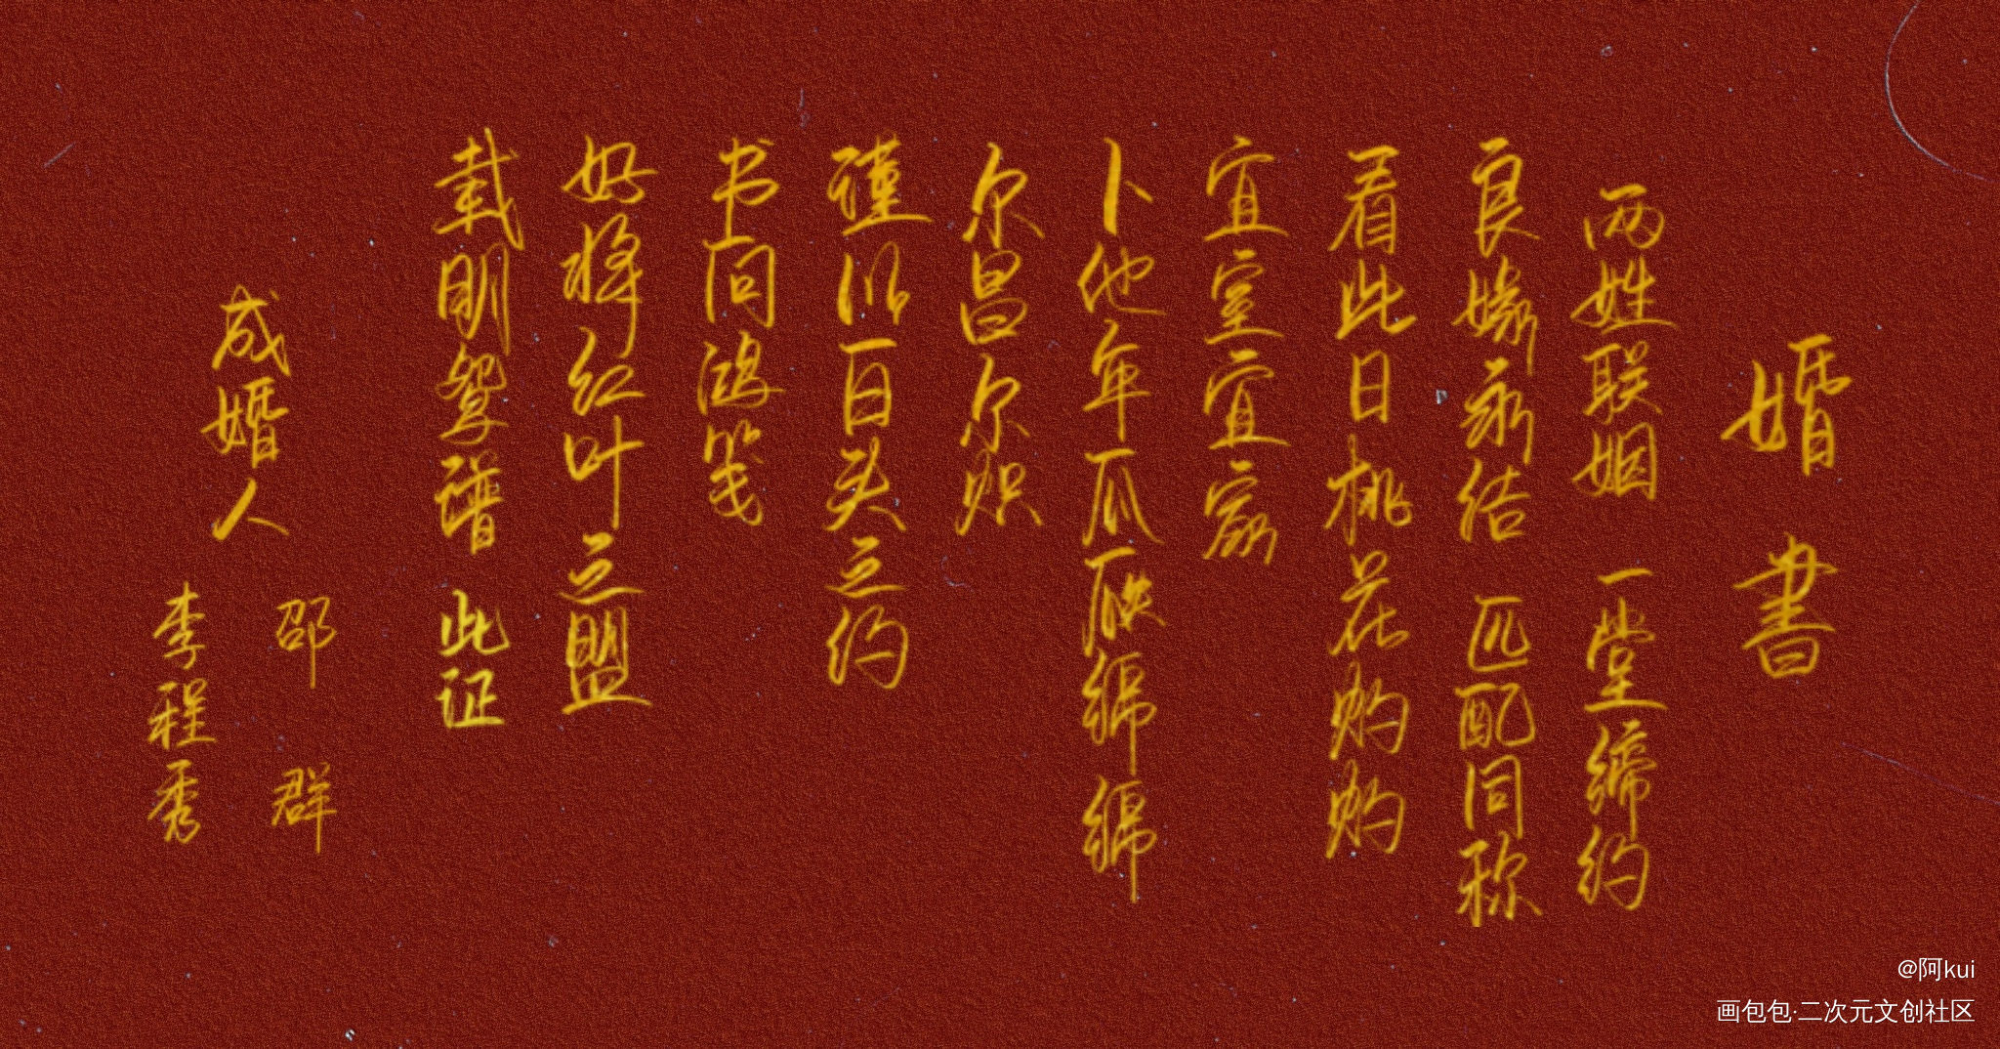 婚書
两姓联姻 一堂缔约
良缘永结 匹配同称
看此日桃花灼灼
宜室宜家
卜他年瓜瓞绵绵
尔昌尔炽
谨以白头之约
书向鸿笺
好将红叶之盟
载明鸳谱 此证
成婚人
邵群
李程秀
@阿kui
画包包·二次元文创社区